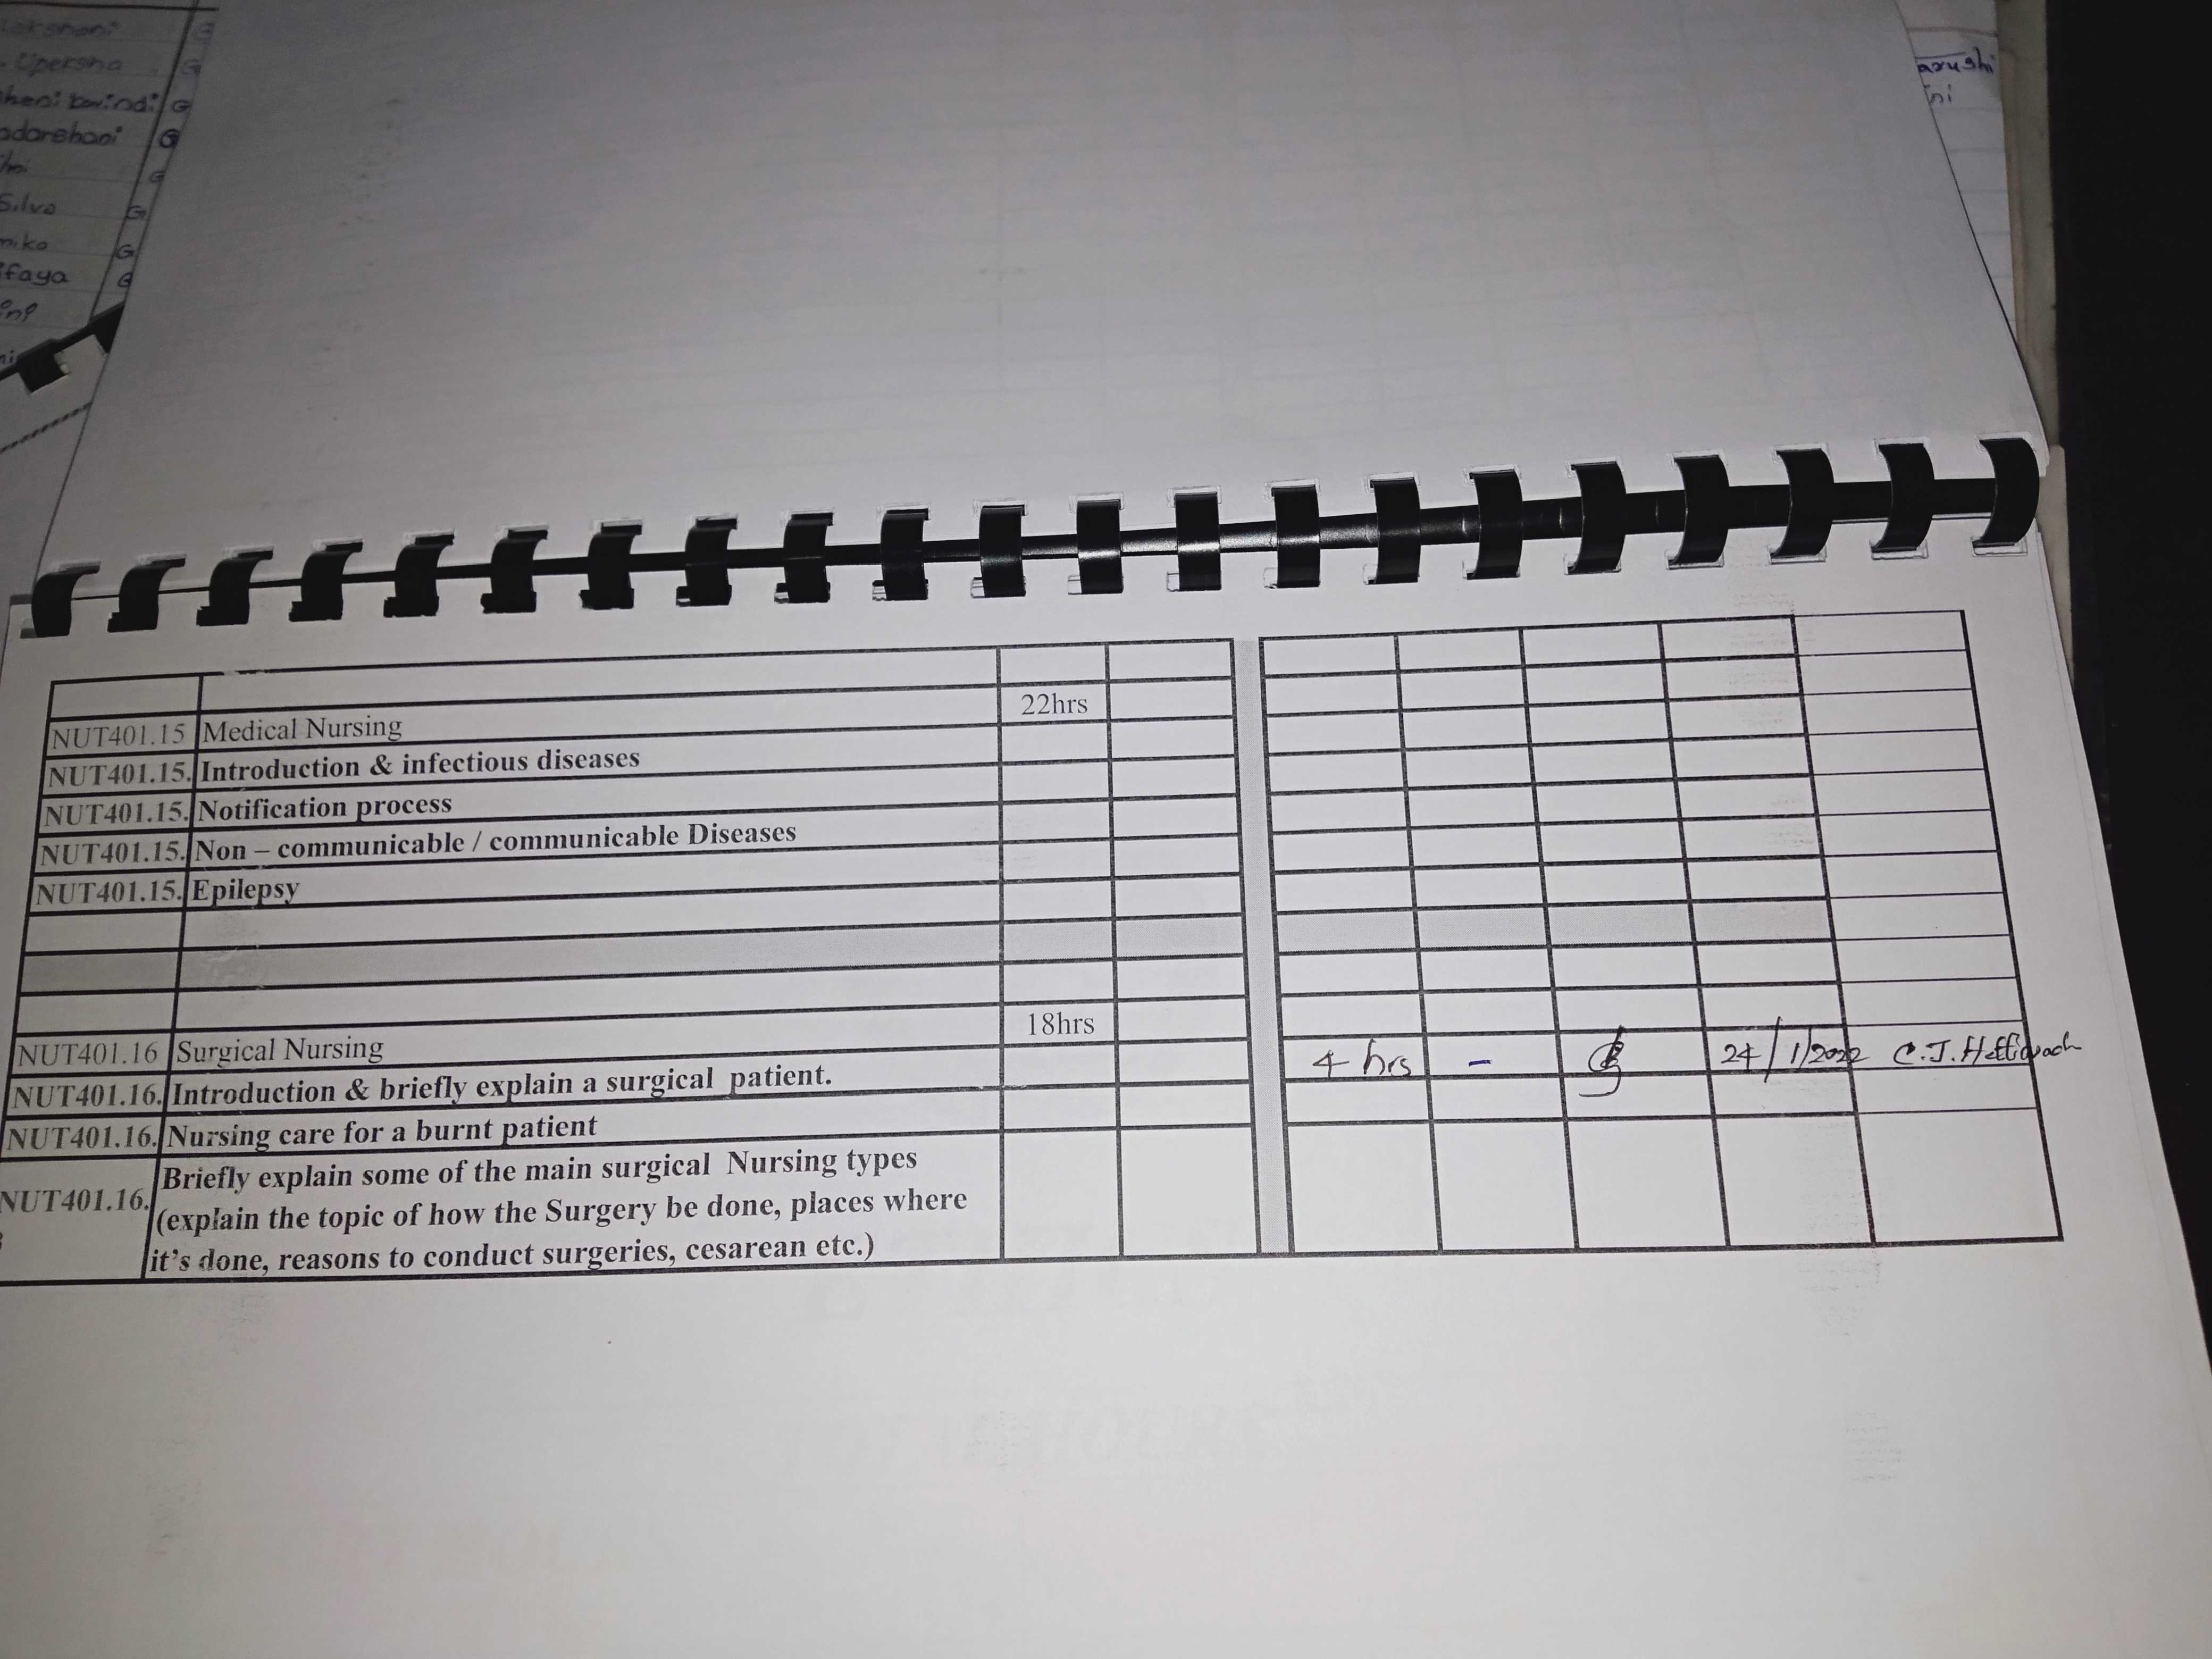 Lakshani G
Upeksha G
G
adarshani G
G
Silva G
G
ifaya G
arushi
22hrs
NUT401.15 Medical Nursing
NUT401.15. Introduction & infectious diseases
NUT401.15. Notification process
NUT401.15. Non – communicable / communicable Diseases
NUT401.15. Epilepsy
18hrs
NUT401.16 Surgical Nursing
NUT401.16. Introduction & briefly explain a surgical patient. 4 hrs - 24/1/2022 C.J.
NUT401.16. Nursing care for a burnt patient
NUT401.16. Briefly explain some of the main surgical Nursing types
(explain the topic of how the Surgery be done, places where
it's done, reasons to conduct surgeries, cesarean etc.)